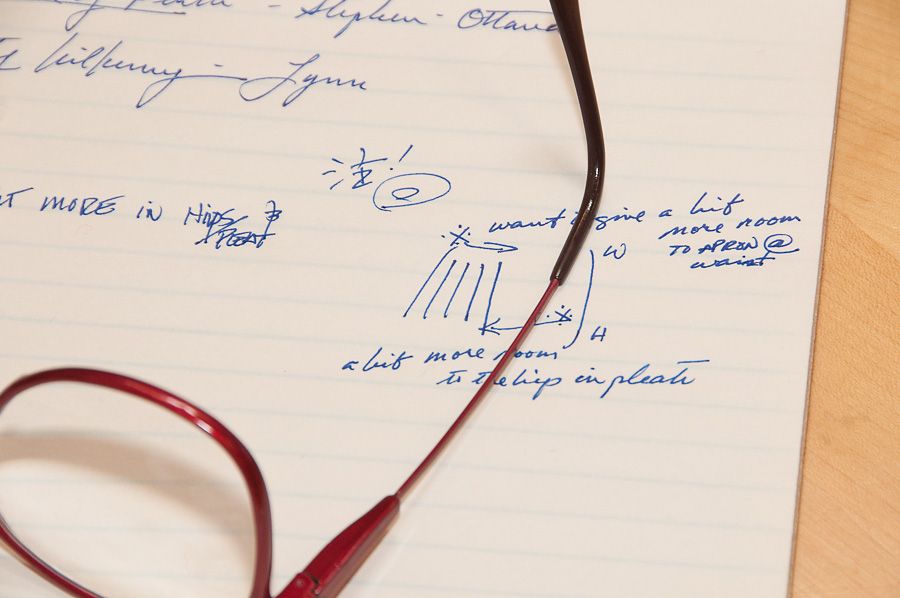 - Stephen - Ottawa
Kilkenny - Lynn
注!
MORE IN HIPS
PLEAT
※ want to give a bit
more room
TO APRON @
waist
W
※
H
a bit more room
to the hip in pleats